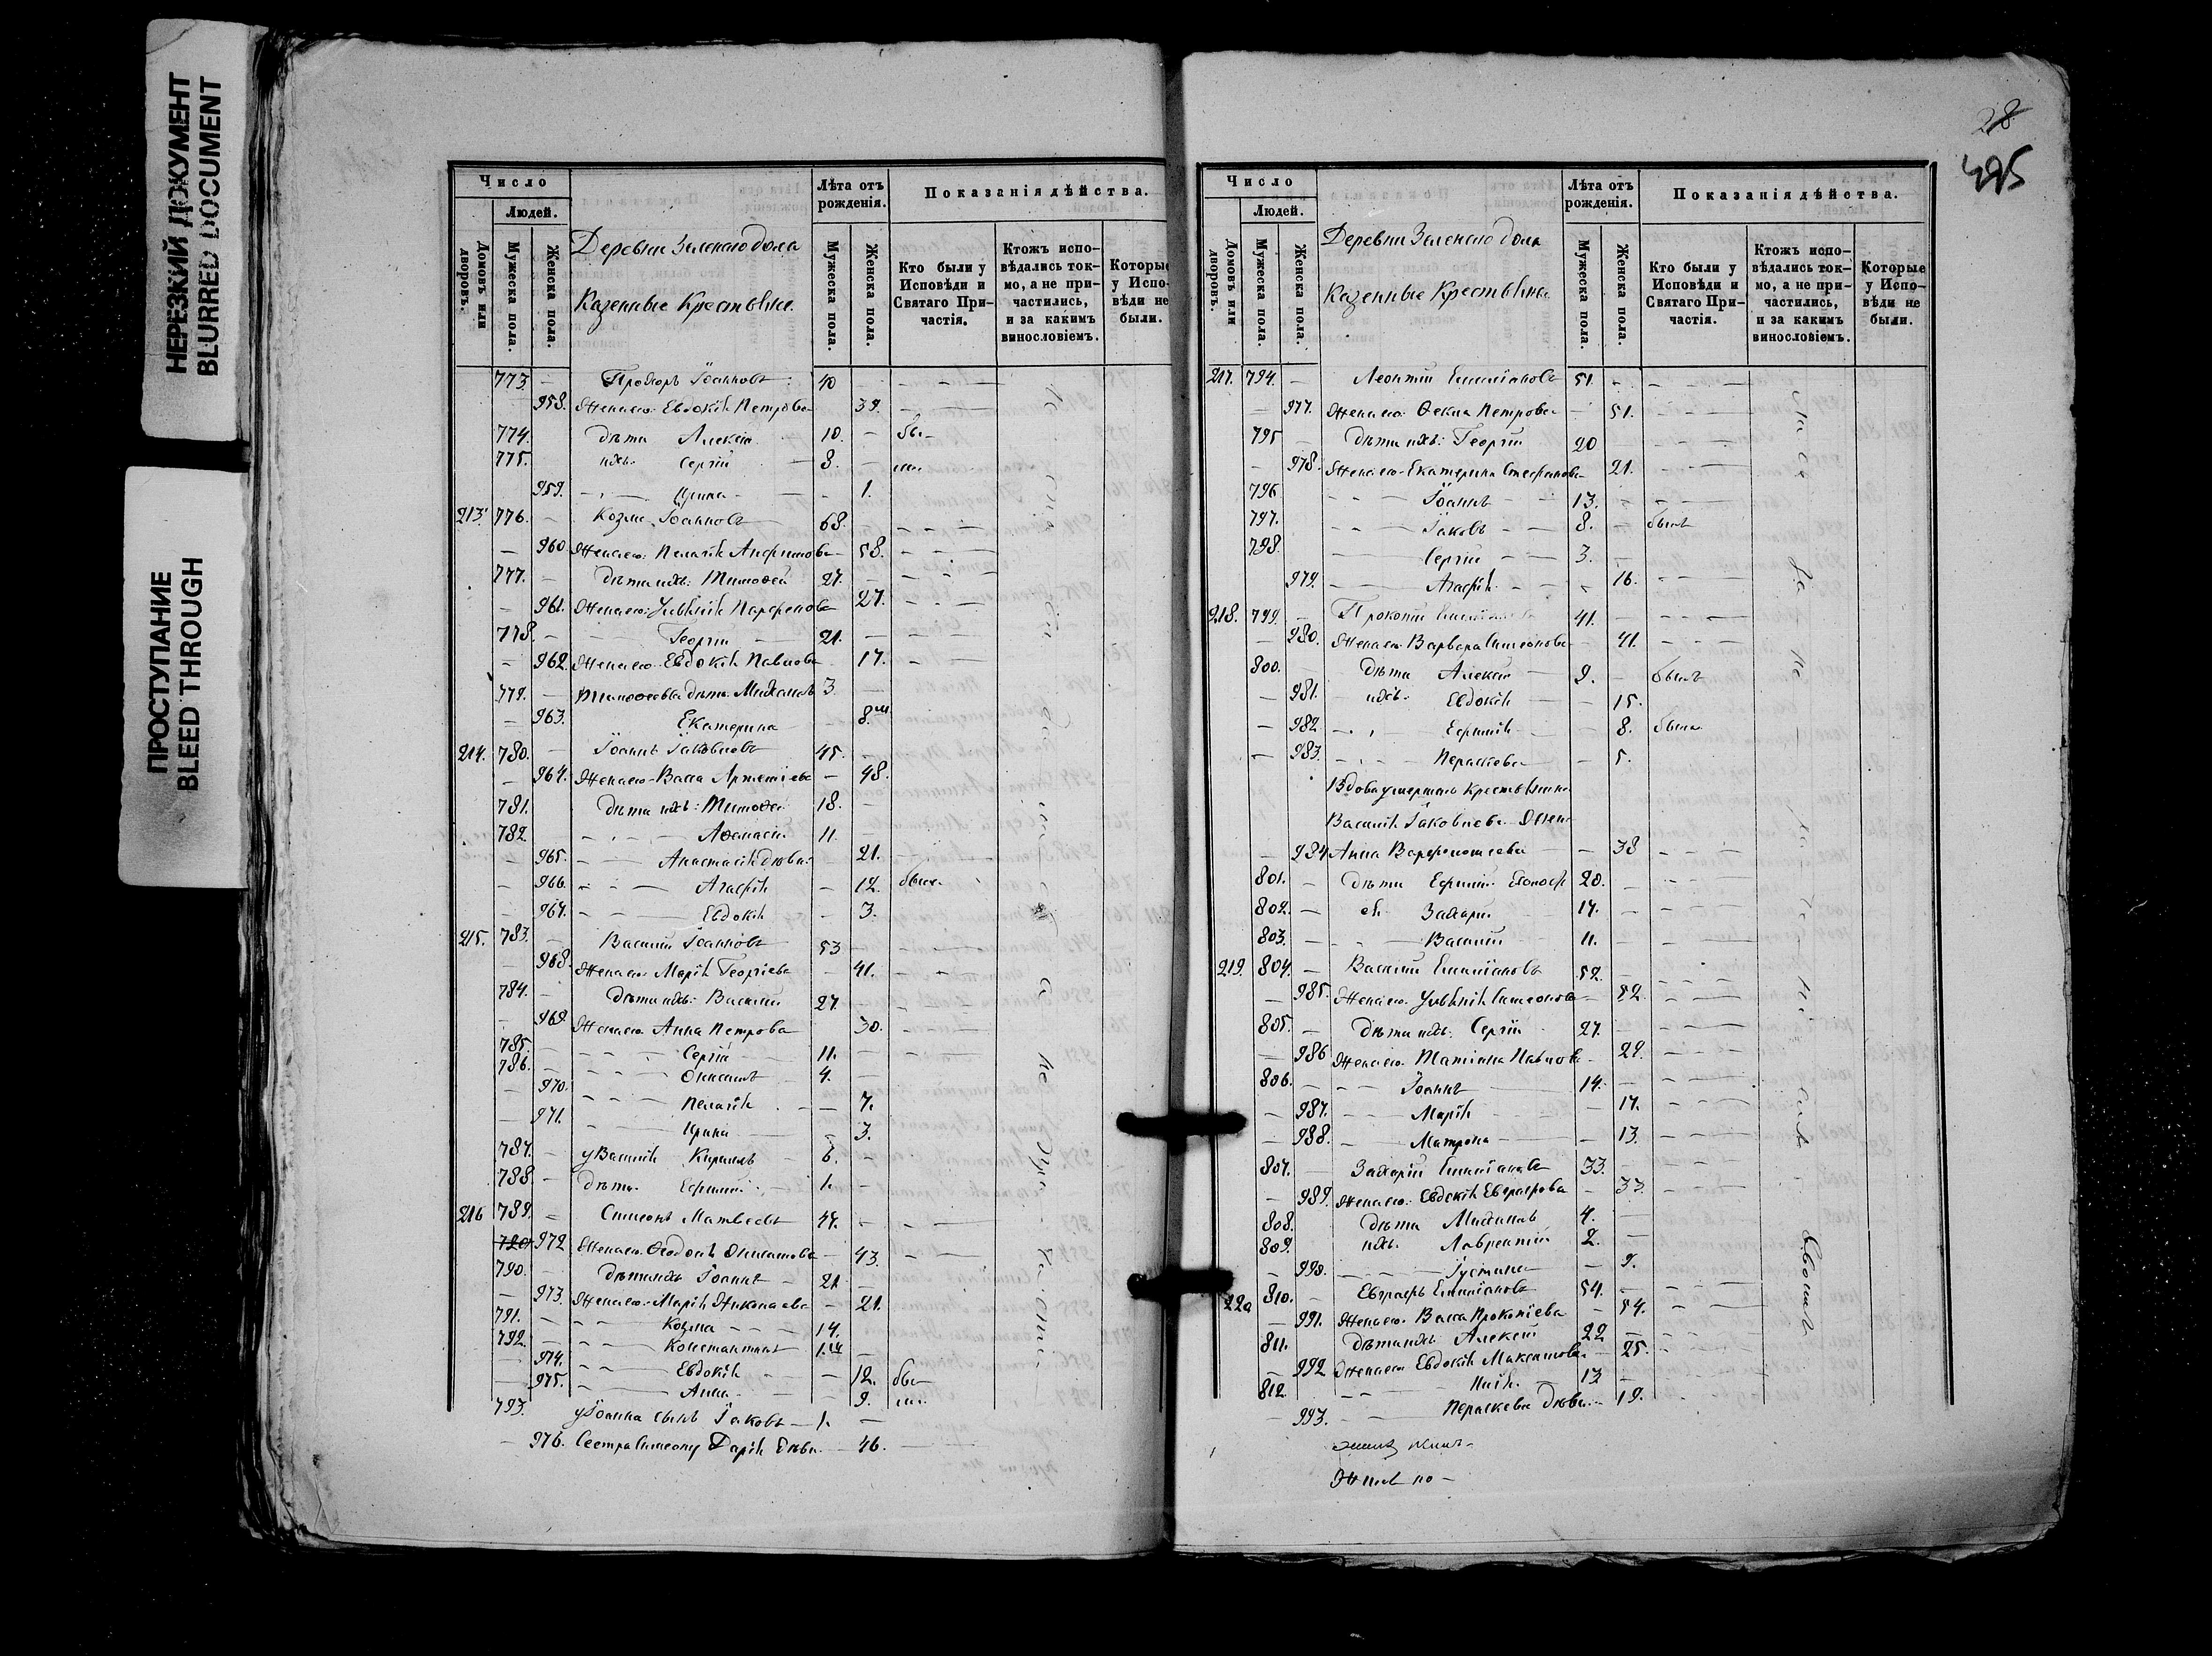 НЕРЕЗКИЙ ДОКУМЕНТ
BLURRED DOCUMENT
ПРОСТУПАНИЕ
BLEED THROUGH
Число
Людей.
Домовъ или дворовъ.
Мужеска пола.
Женска пола.
Деревни Зеленаго дола
Казенные Крестьяне.
Лѣта отъ рожденія.
Мужеска пола.
Женска пола.
Показанія дѣйства.
Кто были у Исповѣди и Святаго Причастія.
Ктожъ исповѣдались токмо, а не причастились, и за какимъ винословіемъ.
Которые у Исповѣди не были.
773. — Прохоръ Іоанновъ 40 —
958. Жена его: Евдокія Петрова 39.
774. Дѣти Алексій 10. — бы-
775. ихъ: Сергій 8. — ли.
959. Ирина 1.
213. 776. Козма Іоанновъ 68.
960. Жена его: Пелагія 58.
777. Дѣти ихъ: Тимофей 27.
961. Жена его: Парфенова 27.
778. Георгій 21.
962. Жена его: Евдокія Павлова 17.
779. Тимофея дѣти: Михаилъ 3
963. Екатерина 8.
214. 780. Іоаннъ Іаковлевъ 45.
964. Жена его Васса Артеміева 48.
781. Дѣти ихъ: Тимофей 18.
782. Афанасій 11.
965. Анастасія дѣвка 21.
966. Агафія 12. была
967. Евдокія 3.
215. 783. Василій Іоанновъ 53
968. Жена его Марія Георгіева 41.
784. Дѣти ихъ: Василій 27.
969. Жена его Анна Петрова 30.
785. Сергій 11.
786. Онисимъ 4.
970. Пелагія 7.
971. Ирина 3.
787. у Василія Кириллъ 6.
788. дѣти Ефимій 1.
216 789. Симеонъ Матвеевъ 47.
972 Жена его Феодосія Онисимова 43.
790. Дѣти ихъ Іоаннъ 21
973. Жена его Марія Николаева 21.
791. Козма 14.
792. Константинъ 1.
974. Евдокія 12. бы-
975. Анна 9. ли.
793. у Іоанна сынъ Іаковъ 1.
976. Сестра Симеону Дарія дѣвка 46.
28
495
Число
Людей.
Домовъ или дворовъ.
Мужеска пола.
Женска пола.
Деревни Зеленаго дола
Казенные Крестьяне
Лѣта отъ рожденія.
Мужеска пола.
Женска пола.
Показанія дѣйства.
Кто были у Исповѣди и Святаго Причастія.
Ктожъ исповѣдались токмо, а не причастились, и за какимъ винословіемъ.
Которые у Исповѣди не были.
217. 794. Леонтій Емиліановъ 51.
977. Жена его: Фекла Петрова 51.
795 Дѣти ихъ: Георгій 20
978. Жена его Екатерина Стефанова 21.
796 Іоаннъ 13.
797. Іаковъ 8. былъ
798. Сергій 3.
979. Агафія 16.
218. 799. Прокопій 41.
980. Жена его Варвара Симеонова 41.
800. Дѣти Алексій 9. былъ
981. ихъ: Евдокія 15.
982 Ефимія 8. была
983. Параскева 5.
Вдова умершаго Крестьянина
Василія Іаковлева Жена
984 Анна Варфоломеева 38
801. Дѣти Ефимій 20.
802. ея Захарій 17.
803. Василій 11.
219. 804. Василій Емиліановъ 52.
985. Жена его Симеонова 52.
805. Дѣти ихъ: Сергій 27.
986 Жена его Татіана Павлова 29.
806. Іоаннъ 14.
987. Марія 17.
988. Матрона 13.
807. Захарій Емиліановъ 33.
989. Жена его: Евдокія Евграфова 33.
808. Дѣти Михаилъ 4.
809. ихъ Лаврентій 2.
990. Іустина 9.
220 810. Евграфъ Емиліановъ 54.
991. Жена его Васса Прокопіева 54.
811. Дѣти ихъ Алексій 22
992 Жена его Евдокія Максимова 25.
812. 13
993. Параскева дѣвка 19.